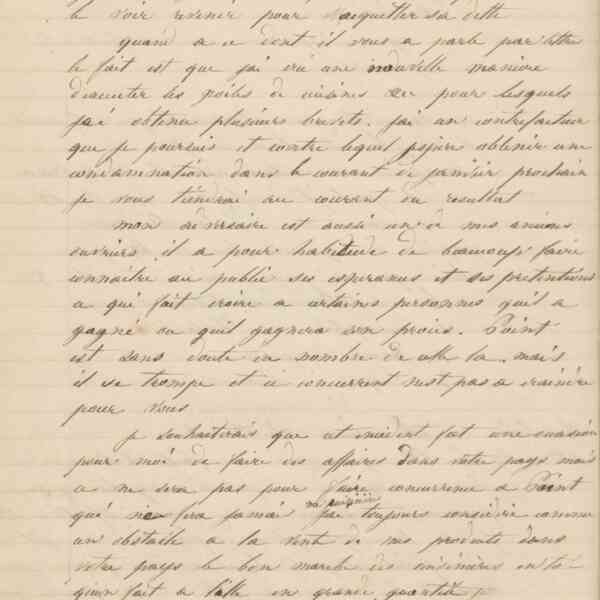 le voir revenir pour s'acquitter sa dette
quand a ce dont il vous a parlé par lettre
le fait est que j'ai créé une nouvelle manière
les poiles de cuisines pour lesquels
j'ai obtenu plusieurs brevets. j'ai un contrefacteur
que je poursuis et contre lequel j'espère obtenir une
condamnation dans le courant de janvier prochain
je vous tiendrai au courant du resultat
mon adversaire est aussi un de mes anciens
ouvriers il a pour habitude de beaucoup faire
connaitre au public ses esperances et ses pretentions
a qui fait croire a certaines personnes qu'il a
gagné ou qu'il gagnera son procès. Point
est sans doute du nombre de celle la. mais
il se trompe et ce concurrent n'est pas a craindre
pour vous
je souhaiterais que cet incident fut une occasion
pour moi de faire des affaires dans votre pays mais
ce ne sera pas pour faire concurrence a Point
qui ne fera jamai
j'ai toujours consideré comme
un obstacle a la vente de mes produits dans
votre pays le bon marché des cuisinières en to-
qu'on fait a en grande quantité